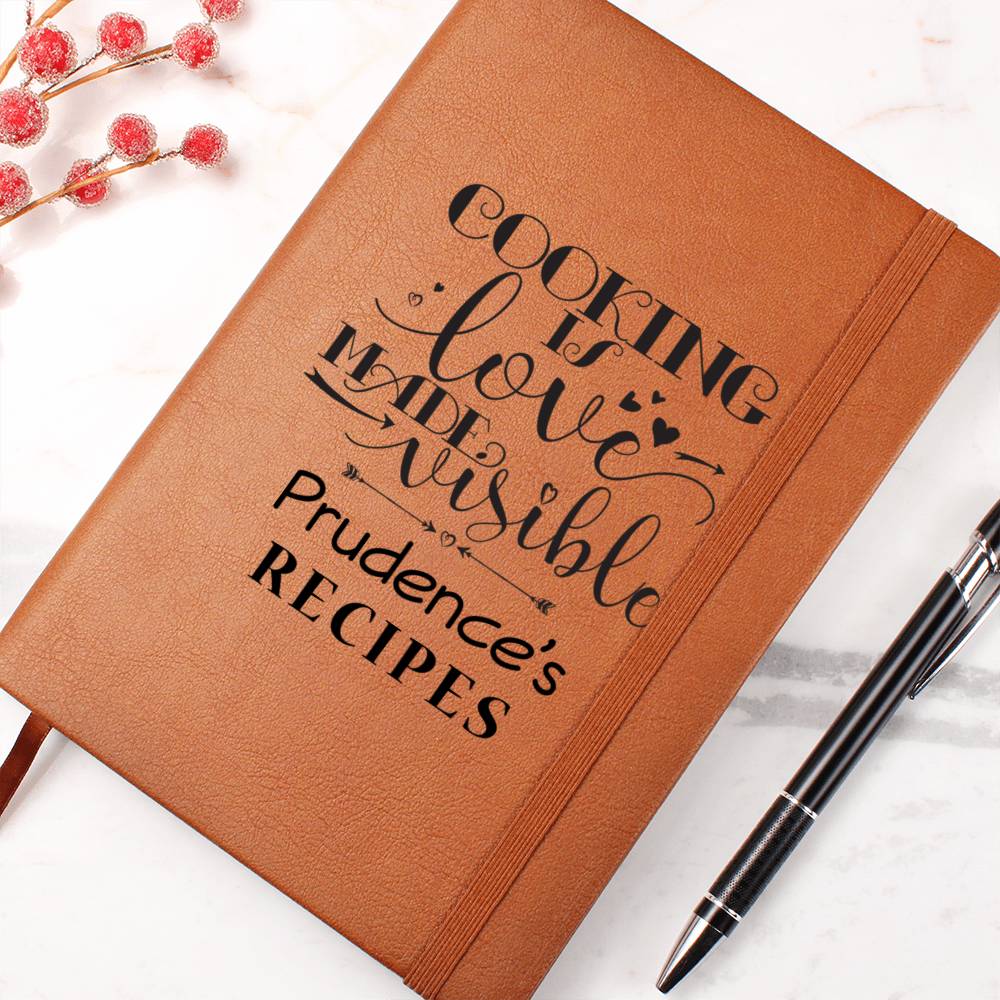 COOKING
IS
love
MADE
visible
Prudence's
RECIPES